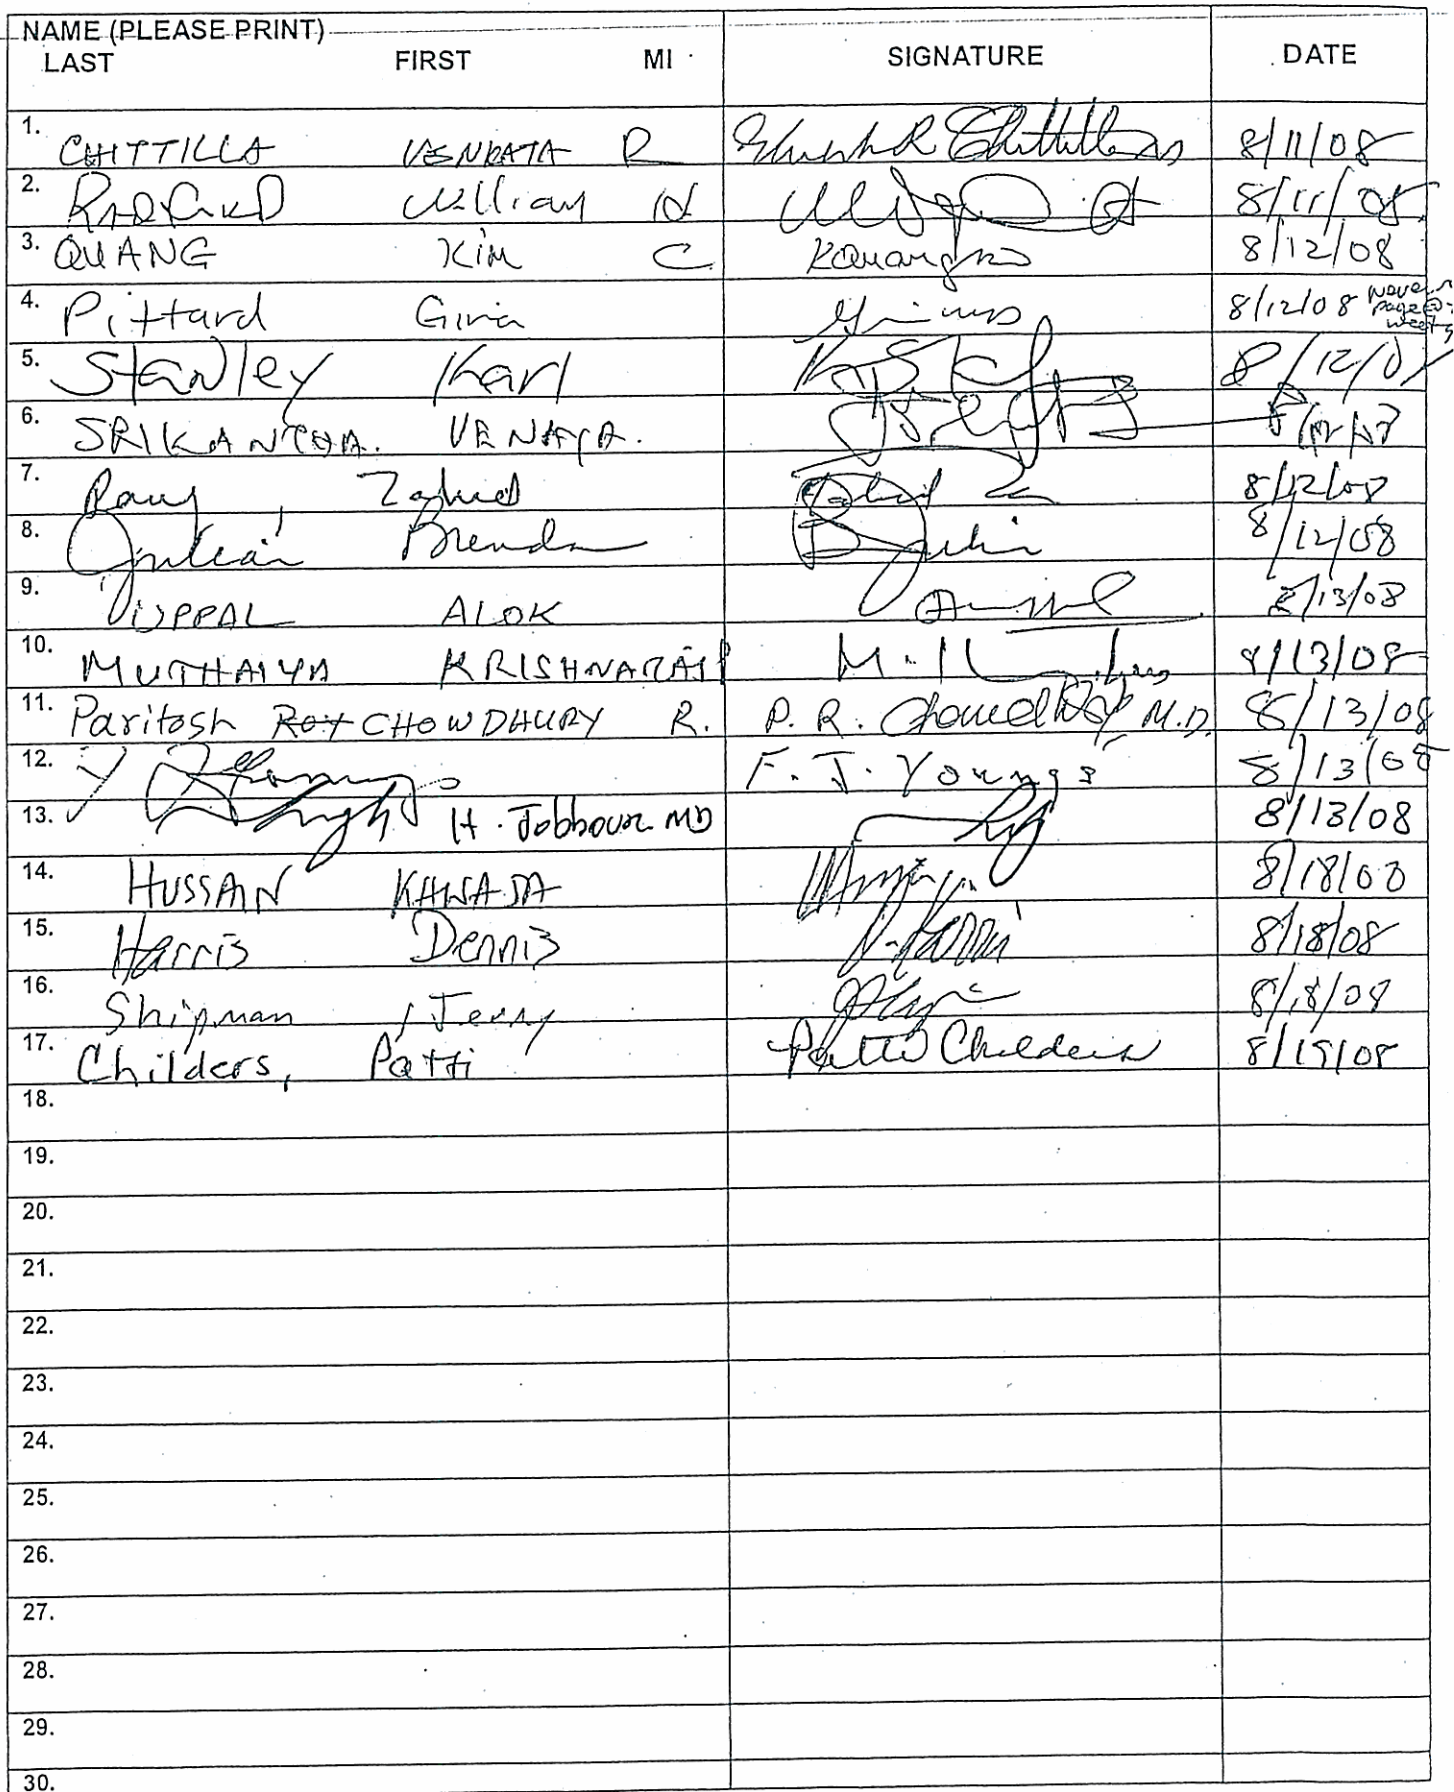 NAME (PLEASE PRINT)
LAST FIRST MI SIGNATURE DATE
1. CHITTILLA VENKATA R 8/11/08
2. William H 8/11/08
3. QUANG Kim C. KQuang 8/12/08
4. Pittard Gina 8/12/08
5. Stanley Karl 8/12/0
6. SRIKANTHA. VENAYA.
7. Zahid 8/12/08
8. Julian Brenda BJulian 8/12/08
9. UPPAL ALOK 8/13/08
10. MUTHAIYA KRISHNARAJ 8/13/08
11. Paritosh ROY CHOWDHURY R. P. R. Chowdhury M.D. 8/13/08
12. F. J. Youngs 8/13/08
13. H. Jabbour MD 8/13/08
14. HUSSAIN KHWAJA 8/18/08
15. Harris Dennis D. Harris 8/18/08
16. Shipman, Jerry 8/18/08
17. Childers, Patti Patti Childers 8/19/08
18.
19.
20.
21.
22.
23.
24.
25.
26.
27.
28.
29.
30.